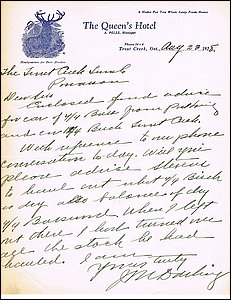 A Home For You When Away From Home
The Queen's Hotel
A. WELLS, Manager
Phone
Trout Creek, Ont., Aug 23 1928
Headquarters for Deer Hunters
The Trout Creek
Dear Sir
Enclosed find advice
for car of 4/4 Birch from
and car 4/4 Birch Trout Creek.
With reference to our phone
conversation to day. Will you
please advise
to haul out what 4/4 Birch
is dry also balance of dry
4/4 Basswood when I left
out there I had turned over
all the stock he had
hauled. I am
Yours truly
J M Darling